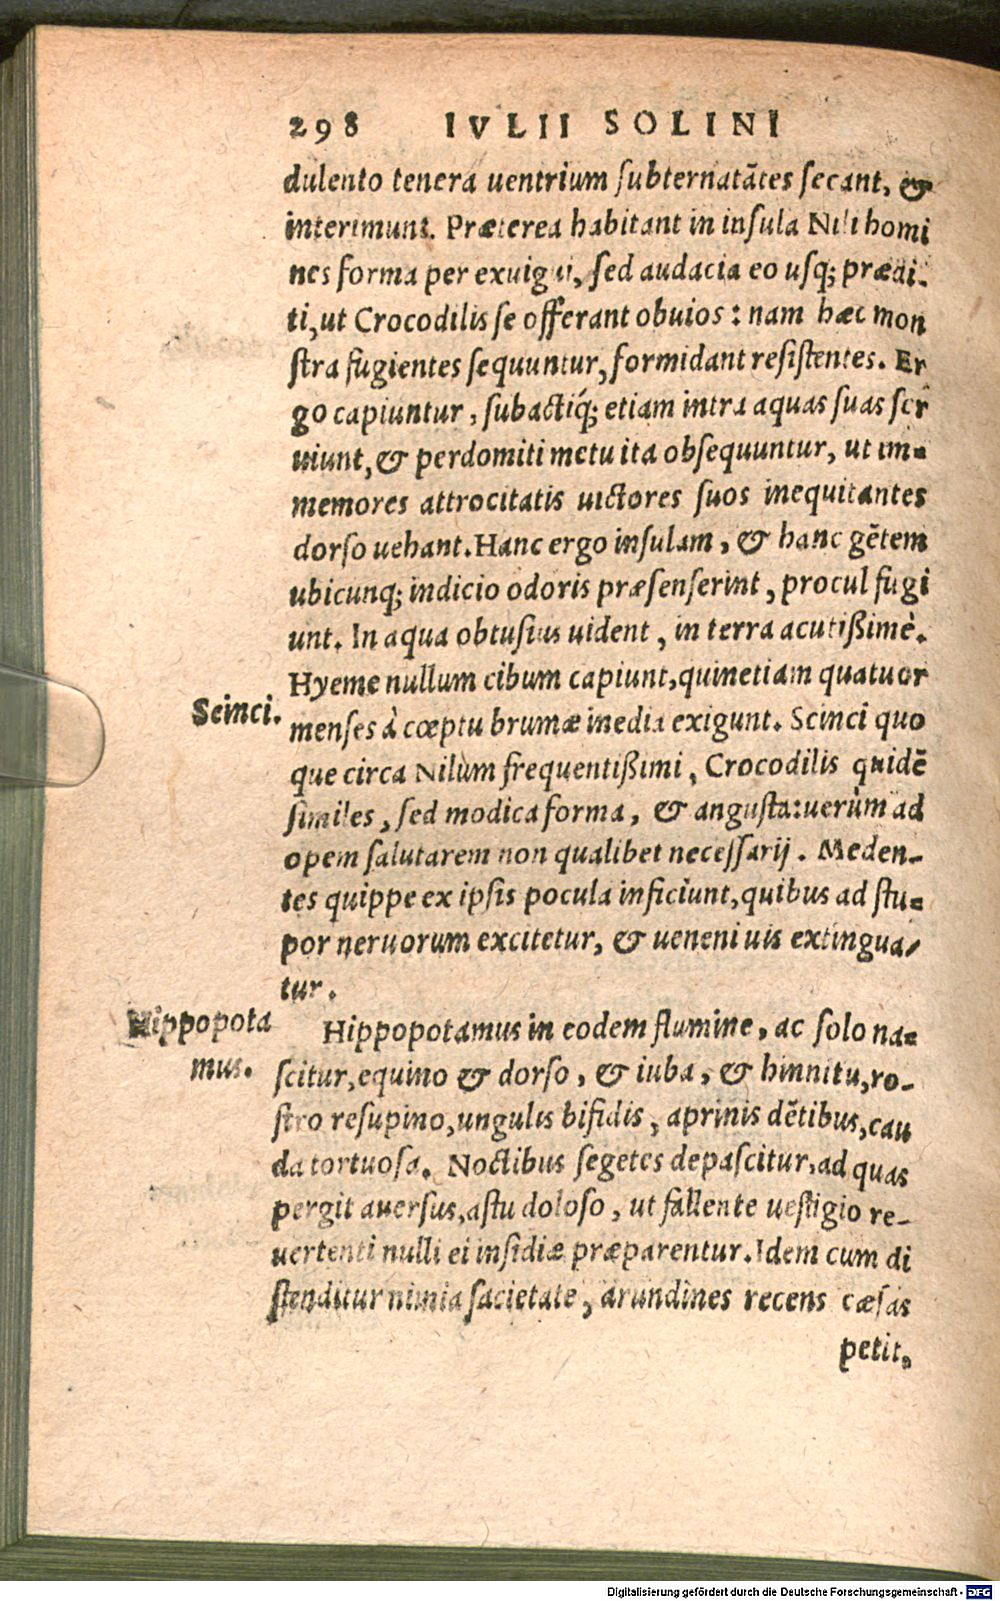 298 IVLII SOLINI
dulento tenera uentrium subternatātes secant, &
interimunt. Præterea habitant in insula Nili homi
nes forma per exuigui, sed audacia eo usq; prædi-
ti, ut Crocodilis se offerant obuios: nam hæc mon
stra fugientes sequuntur, formidant resistentes. Er
go capiuntur, subactiq́; etiam intra aquas suas ser
uiunt, & perdomiti metu ita obsequuntur, ut im-
memores attrocitatis uictores suos inequitantes
dorso uehant. Hanc ergo insulam, & hanc gētem
ubicunq; indicio odoris præsenserint, procul fugi
unt. In aqua obtusius uident, in terra acutißimè.
Hyeme nullum cibum capiunt, quinetiam quatuor
Scinci.
menses à cœptu brumæ inedia exigunt. Scinci quo
que circa Nilum frequentißimi, Crocodilis quidē
similes, sed modica forma, & angusta: uerùm ad
opem salutarem non qualibet necessarij. Meden-
tes quippe ex ipsis pocula inficiunt, quibus ad stu-
por neruorum excitetur, & ueneni uis extingua-
tur.
Hippopota
mus.
Hippopotamus in eodem flumine, ac solo na-
scitur, equino & dorso, & iuba, & hinnitu, ro-
stro resupino, ungulis bifidis, aprinis dētibus, cau
da tortuosa. Noctibus segetes depascitur, ad quas
pergit auersus, astu doloso, ut fallente uestigio re-
uertenti nulli ei insidiæ præparentur. Idem cum di
stenditur nimia sacietate, arundines recens cæsas
petit,
Digitalisierung gefördert durch die Deutsche Forschungsgemeinschaft - DFG